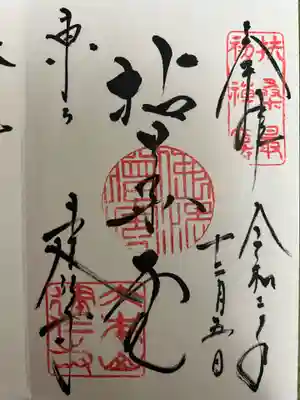 奉拝
扶桑最
初禪窟
令和二年
十二月五日
拈華堂
東山
建仁寺